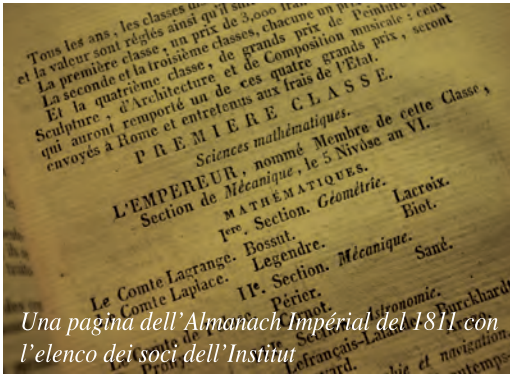 Tous les ans, les classes
et la valeur sont réglés ainsi qu'il
La première classe, un prix de 3,000
La seconde et la troisième classes, chacune un
Et la quatrième classe, de grands prix de Peinture,
Sculpture, d'Architecture et de Composition musicale: ceux
qui auront remporté un de ces quatre grands prix, seront
envoyés à Rome et entretenus aux frais de l'Etat.
PREMIERE CLASSE.
Sciences mathématiques.
L'EMPEREUR, nommé Membre de cette Classe,
Section de Mécanique, le 5 Nivôse au VI.
MATHÉMATIQUES.
Iere. Section. Géométrie.
Le Comte Lagrange. Bossut. Lacroix.
Comte Laplace. Legendre. Biot.
IIe. Section. Mécanique.
Périer. Sané.
Section Astronomie.
Lefrançais-Lalande Burckhardt
et navigation.
Una pagina dell'Almanach Impérial del 1811 con
l'elenco dei soci dell'Institut